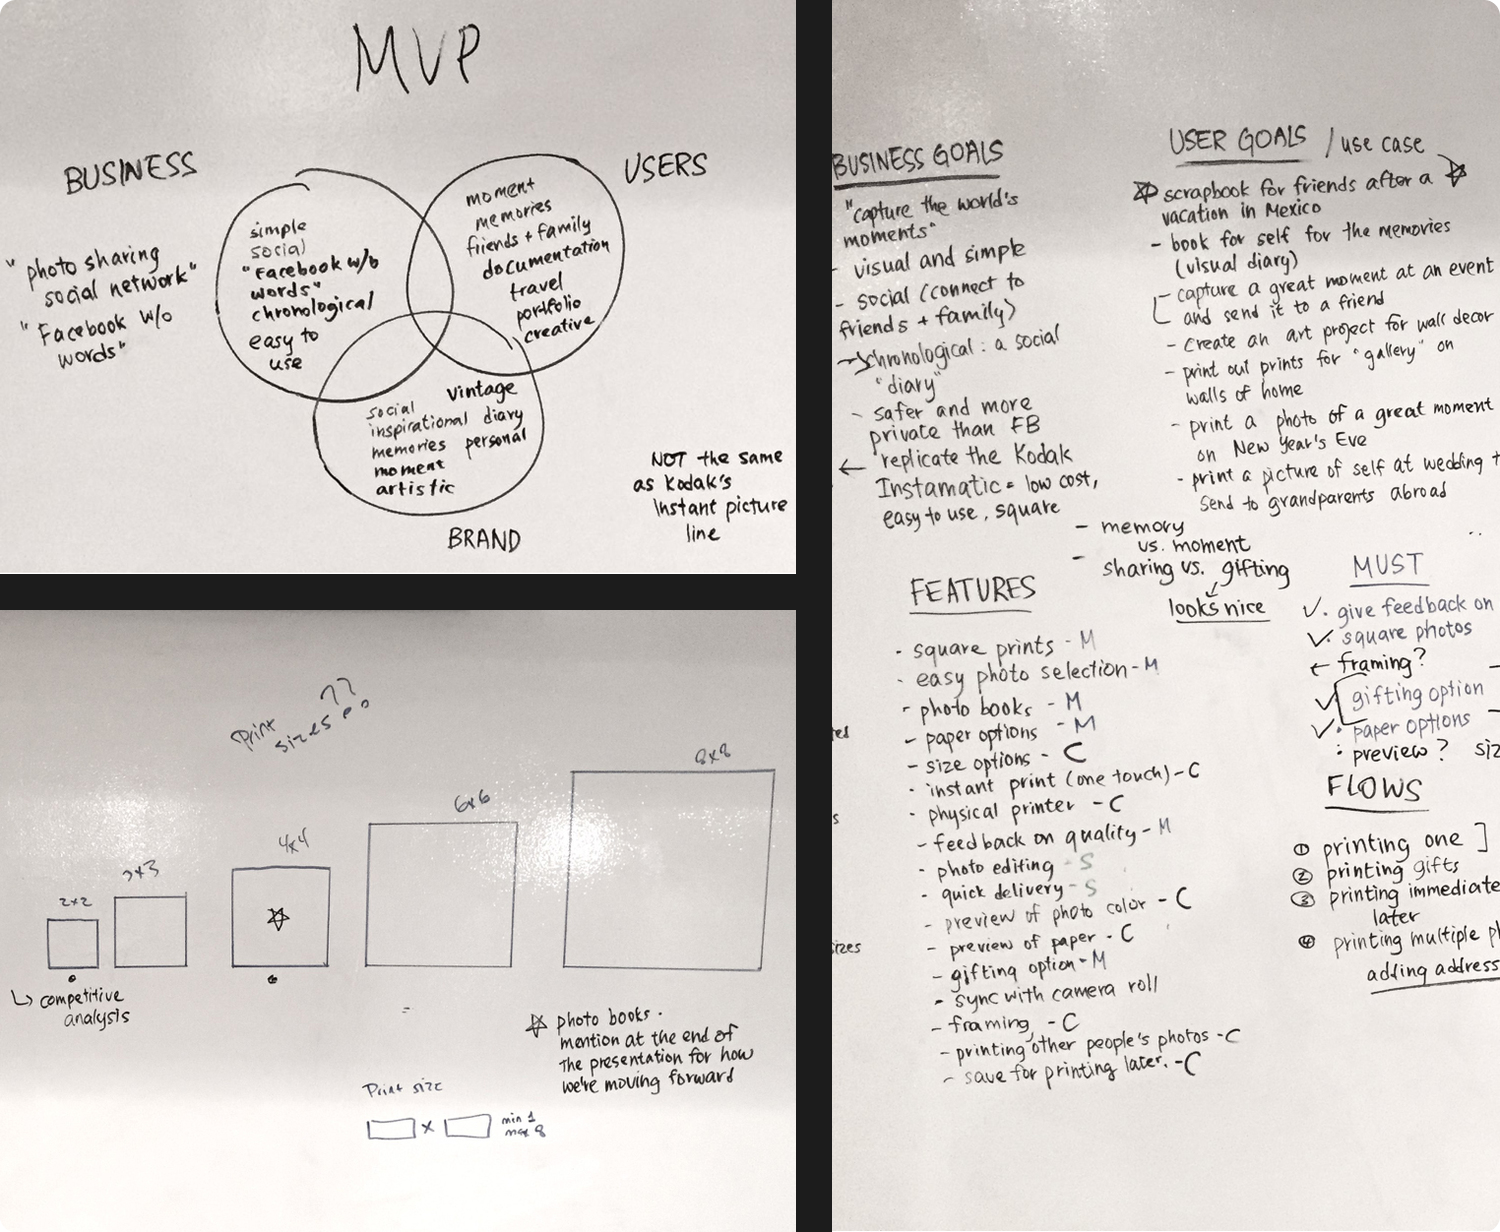 MVP
BUSINESS
USERS
"photo sharing
social network"
"Facebook w/o
words"
simple
social
"Facebook w/o
words"
chronological
easy to
use
moment
memories
friends + family
documentation
travel
portfolio
creative
vintage
social
inspirational diary
memories personal
moment
artistic
BRAND
NOT the same
as Kodak's
Instant picture
line
Print
sizes ??
2x2
3x3
4x4
6x6
8x8
competitive
analysis
photo books.
mention at the end of
the presentation for how
we're moving forward
Print size
x
min 1
max 8
BUSINESS GOALS
"capture the world's
moments"
- visual and simple
- social (connect to
friends + family)
chronological: a social
"diary"
- safer and more
private than FB
← replicate the Kodak
Instamatic = low cost,
easy to use, square
USER GOALS / use case
scrapbook for friends after a
vacation in Mexico
- book for self for the memories
(visual diary)
- capture a great moment at an event
and send it to a friend
- create an art project for wall decor
- print out prints for "gallery" on
walls of home
- print a photo of a great moment
on New Year's Eve
- print a picture of self at wedding +
send to grandparents abroad
- memory
vs. moment
- sharing vs. gifting
looks nice
FEATURES
· square prints - M
· easy photo selection - M
- photo books - M
- paper options - M
- size options - C
· instant print (one touch) - C
· physical printer - C
- feedback on quality - M
· photo editing - S
· quick delivery - S
- preview of photo color - C
- preview of paper - C
- gifting option - M
- sync with camera roll
- framing - C
- printing other people's photos - C
- save for printing later. - C
MUST
✓· give feedback on
✓· square photos
← framing?
✓ gifting option
✓· paper options
: preview?
FLOWS
① printing one ]
② printing gifts
③ printing immediate
later
④ printing multiple
adding address